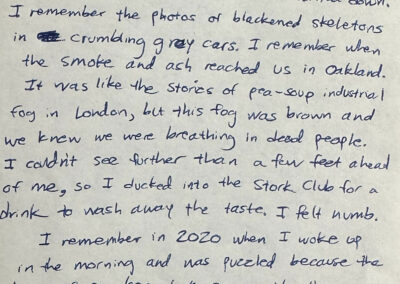 down.
I remember the photos of blackened skeletons
in crumbling gray cars. I remember when
the smoke and ash reached us in Oakland.
It was like the stories of pea-soup industrial
fog in London, but this fog was brown and
we knew we were breathing in dead people.
I couldn't see further than a few feet ahead
of me, so I ducked into the Stork Club for a
drink to wash away the taste. I felt numb.
I remember in 2020 when I woke up
in the morning and was puzzled because the